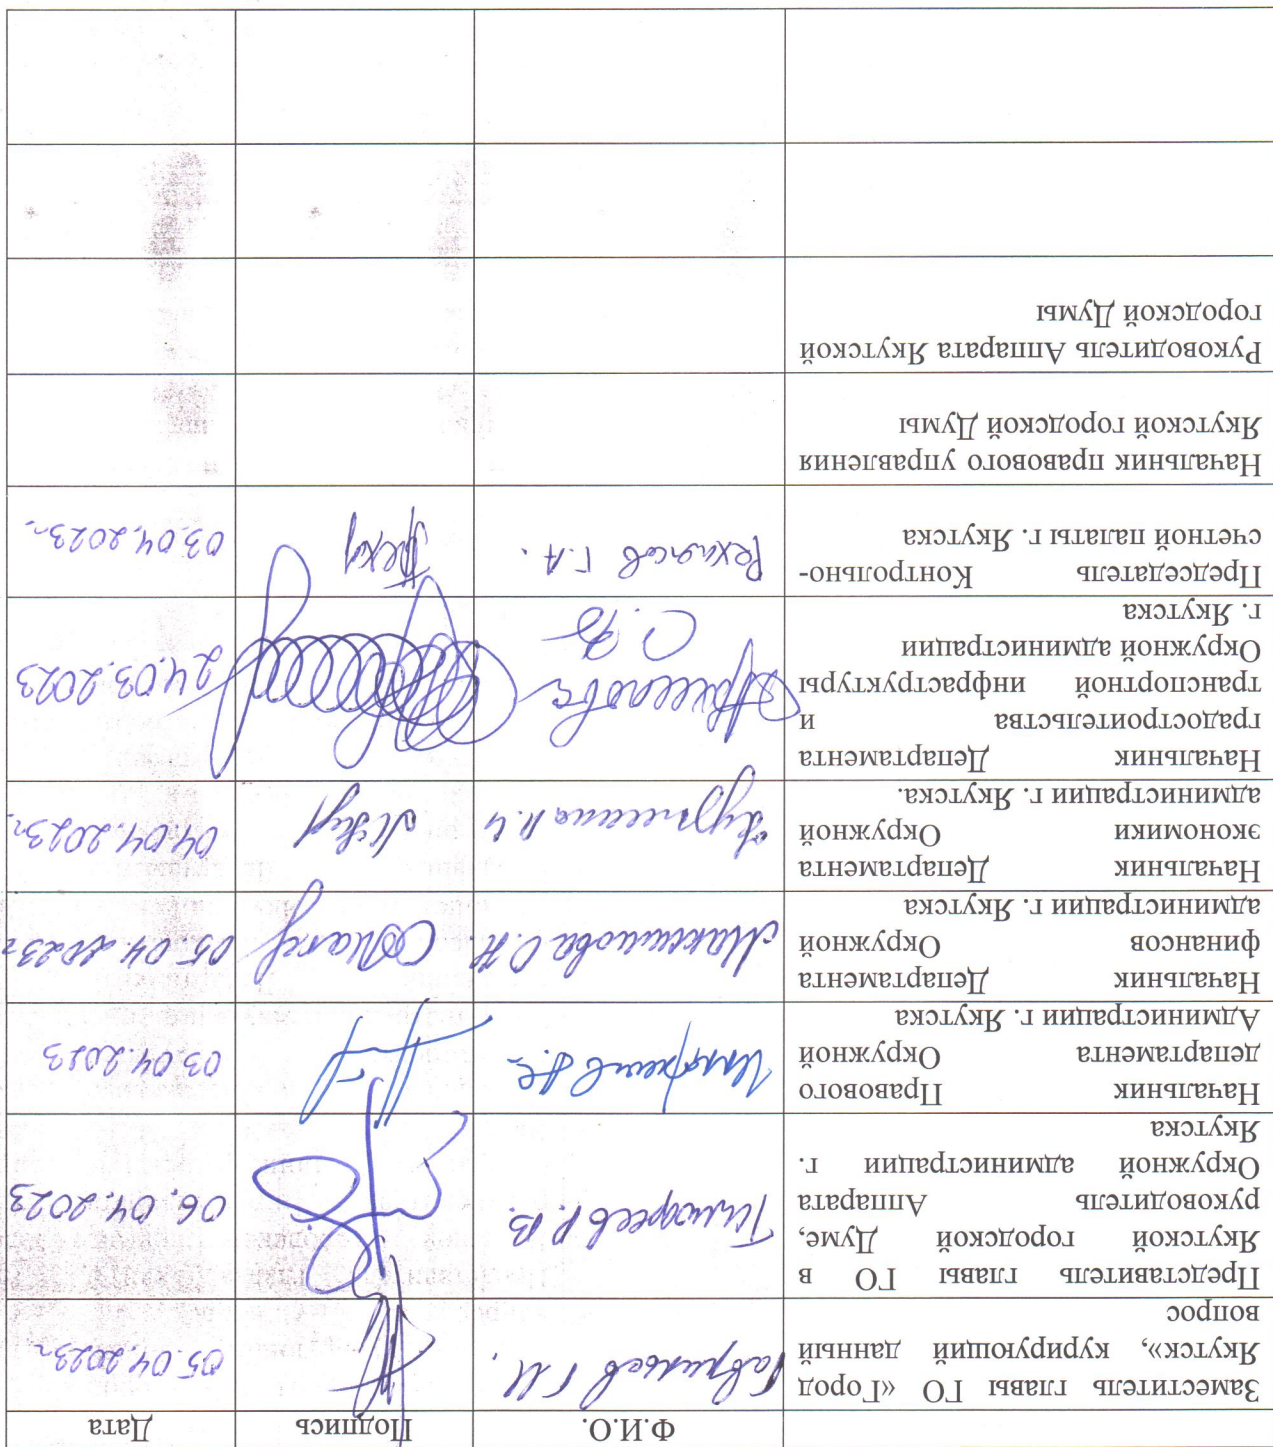 Ф.И.О. Подпись Дата
Заместитель главы ГО «Город
Якутск», курирующий данный
вопрос
Гаврильев Г.И. 05.04.2023г.
Представитель главы ГО в
Якутской городской Думе,
руководитель Аппарата
Окружной администрации г.
Якутска
Тимофеев Р.В. 06.04.2023
Начальник Правового
департамента Окружной
Администрации г. Якутска
03.04.2023
Начальник Департамента
финансов Окружной
администрации г. Якутска
Максимова О.Н. 05.04.2023г
Начальник Департамента
экономики Окружной
администрации г. Якутска.
04.04.2023г.
Начальник Департамента
градостроительства и
транспортной инфраструктуры
Окружной администрации
г. Якутска
24.03.2023
Председатель Контрольно-
счетной палаты г. Якутска
Г.А. 03.04.2023г.
Начальник правового управления
Якутской городской Думы
Руководитель Аппарата Якутской
городской Думы